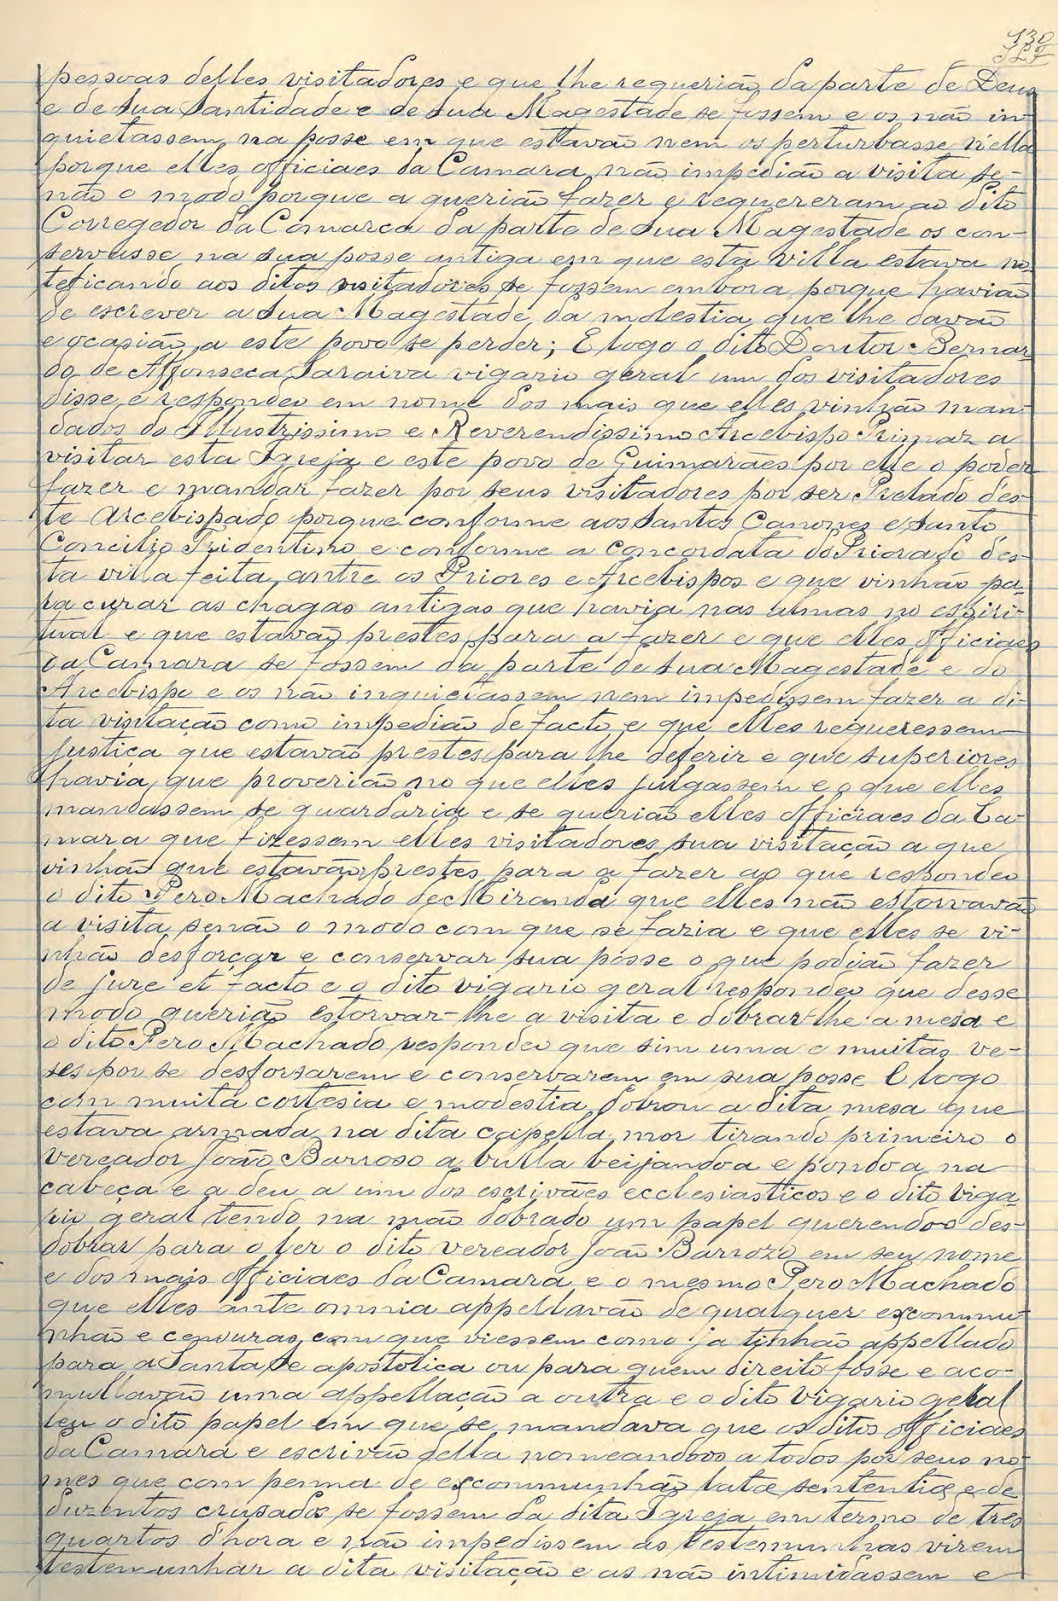 130
pessoas delles visitadores e que lhe requerião da parte de Deus
e de sua Santidade e de sua Magestade se fossem e os não in-
quietassem na posse em que estavão nem os perturbasse n'ella
porque elles officiaes da Camara não impedião a visita se-
não o modo porque a querião fazer e requereram ao dito
Corregedor da Comarca da parte de sua Magestade os con-
servasse na sua posse antiga em que esta villa estava no-
teficando aos ditos visitadores se fossem embora porque havião
de escrever a sua Magestade da molestia que lhe davão
e ocasião a este povo se perder; E logo o dito Doutor Bernar-
do de Affonseca Saraiva vigario geral um dos visitadores
disse e respondeo em nome dos mais que elles vinhão man-
dados do Illustrissimo e Reverendissimo Arcebispo Primaz a
visitar esta Igreja e este povo de Guimarães por elle o poder
fazer e mandar fazer por seus visitadores por ser Prelado des-
te Arcebispado porque conforme aos Santos Canones e Santo
Concilio Tridentino e conforme a concordata do Priorado des-
ta villa feita antre os Priores e Arcebispos e que vinhão pa-
ra curar as chagas antigas que havia nas almas no espiri-
tual e que estavão prestes para a fazer e que elles officiaes
da Camara se fossem da parte de sua Magestade e do
Arcebispo e os não inquietassem nem impedissem fazer a di-
ta visitação como impedião de facto e que elles requeressem
justiça que estavão prestes para lhe deferir e que superiores
havia que proverião no que elles julgassem e o que elles
mandassem se guardaria e se querião elles officiaes da Ca-
mara que fizessem elles visitadores sua visitação a que
vinhão que estavão prestes para a fazer ao que respondeo
o dito Pero Machado de Miranda que elles não estorvavão
a visita senão o modo com que se fazia e que elles se vi-
nhão desforçar e conservar sua posse o que podião fazer
de jure et facto e o dito vigario geral respondeo que desse
modo querião estorvar-lhe a visita e dobrar-lhe a mesa e
o dito Pero Machado respondeo que sim uma e muitas ve-
ses por se desforsarem e conservarem em sua posse E logo
com muita cortesia e modestia dobrou a dita mesa que
estava armada na dita capella mor tirando primeiro o
vereador João Barroso a bulla beijandoa e pondoa na
cabeça e a deu a um dos escrivães ecclesiasticos e o dito viga-
rio geral tendo na mão dobrado um papel querendoo des-
dobrar para o ler o dito vereador João Barrozo em seu nome
e dos mais officiaes da Camara e o mesmo Pero Machado
que elles ante omnia appellavão de qualquer excommu-
nhão e censuras com que viessem como ja tinhão appellado
para a Santa Se apostolica ou para quem direito fosse e aco-
mullavão uma appellação a outra e o dito vigario geral
leu o dito papel em que se mandava que os ditos officiaes
da Camara e escrivão della nomeandoos a todos por seus no-
mes que com penna de excommunhão latæ sententiæ e de
duzentos crusados se fossem da dita Igreja em termo de tres
quartos d'hora e não impedissem as testemunhas virem
testemunhar a dita visitação e as não intimidassem e